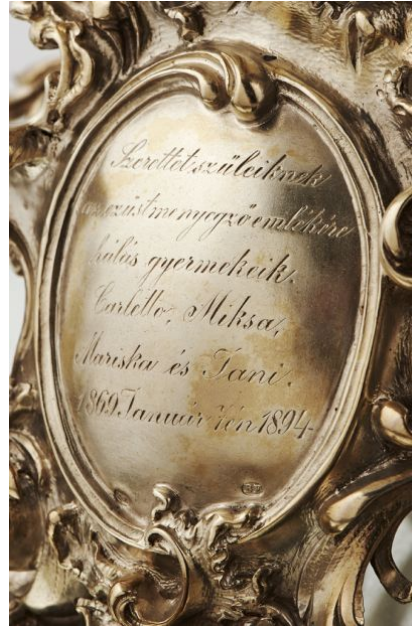 Szerettet szüleiknek
az ezüstmenyegző emlékére
hálás gyermekeik.
Carletto, Miksa,
Mariska és Jani.
1869 Január 1894